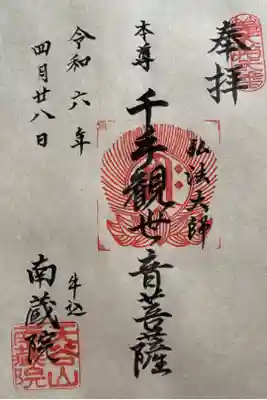 奉拝
弘法大師
本尊 千手観世音菩薩
令和六年
四月廿八日
牛込
南蔵院